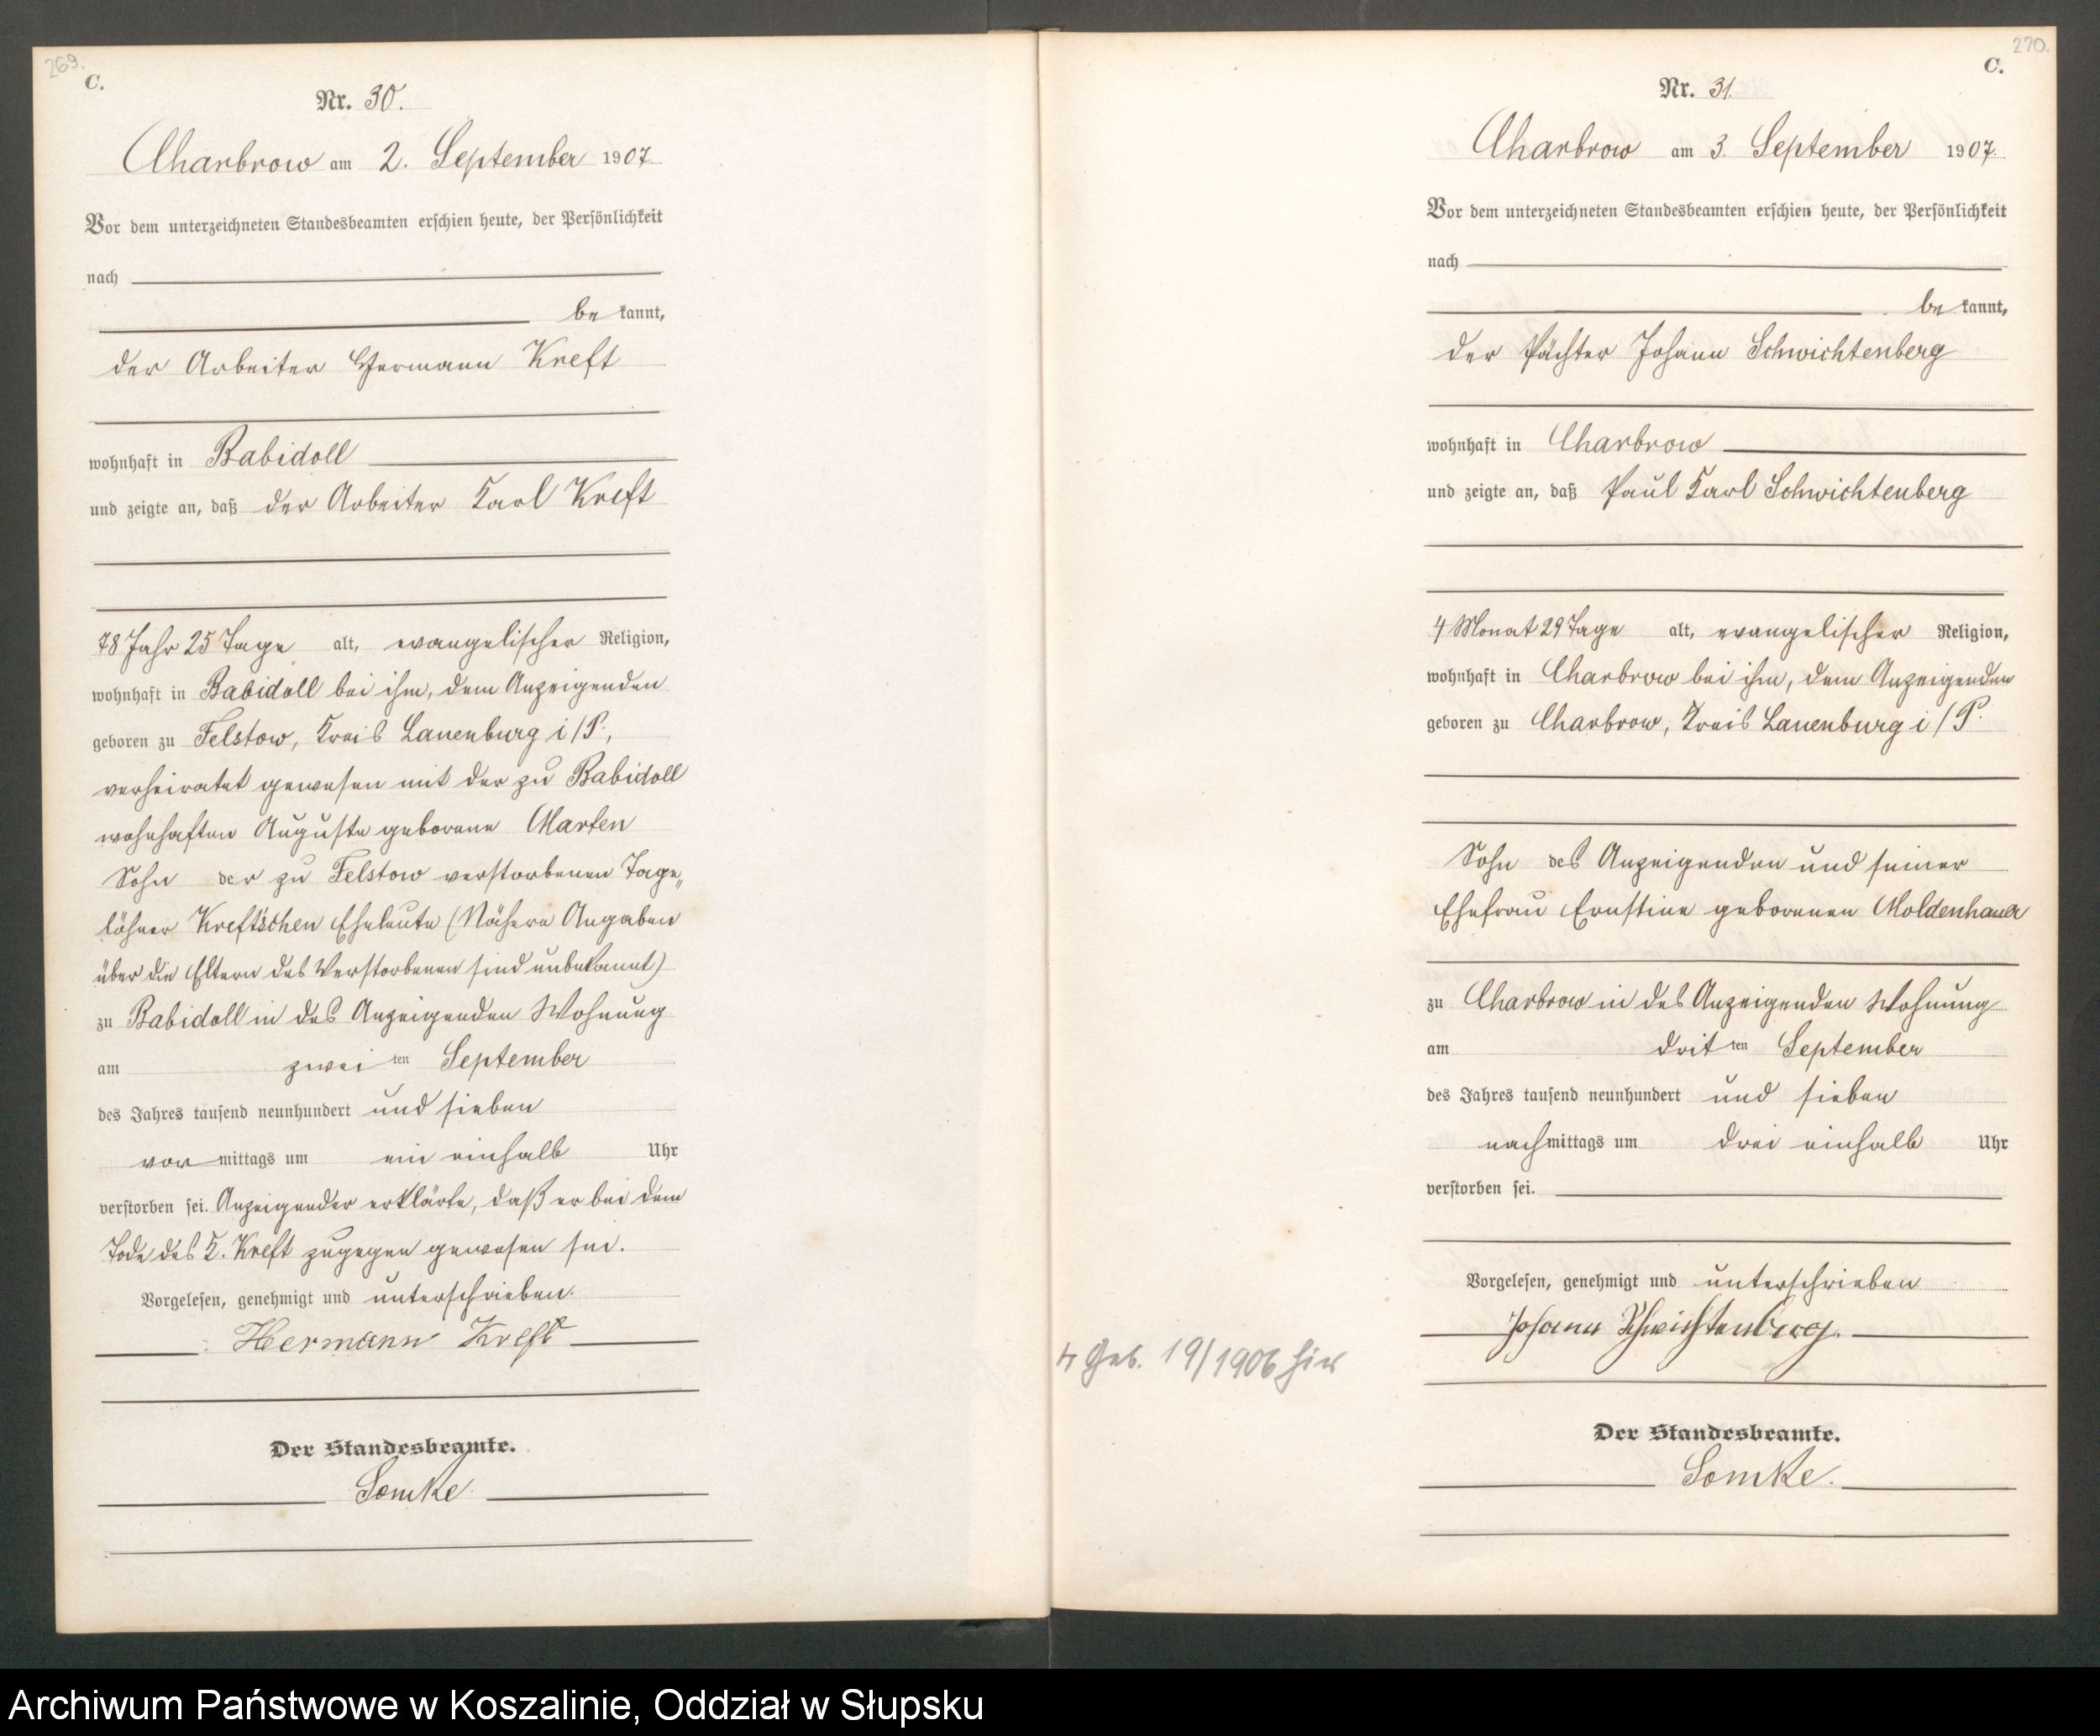 269.
C.
Nr. 30.
Charbrow am 2. September 1907.
Vor dem unterzeichneten Standesbeamten erschien heute, der Persönlichkeit
nach
be kannt,
der Arbeiter Hermann Kreft
wohnhaft in Babidoll
und zeigte an, daß der Arbeiter Karl Kreft
78 Jahr 25 Tage alt, evangelischer Religion,
wohnhaft in Babidoll bei ihm, dem Anzeigenden
geboren zu Felstow, Kreis Lauenburg i/P.,
verheiratet gewesen mit der zu Babidoll
wohnhaften Auguste geborene Marten
Sohn der zu Felstow verstorbenen Tage„
löhner Kreft'schen Eheleute (Nähere Angaben
über die Eltern des Verstorbenen sind unbekannt)
zu Babidoll in des Anzeigenden Wohnung
am zwei ten September
des Jahres tausend neunhundert und sieben
vor mittags um ein einhalb Uhr
verstorben sei. Anzeigender erklärte, daß er bei dem
Tode des K. Kreft zugegen gewesen sei.
Vorgelesen, genehmigt und unterschrieben.
Hermann Kreft
Der Standesbeamte.
Lomke
270.
C.
Nr. 31.
Charbrow am 3. September 1907.
Vor dem unterzeichneten Standesbeamten erschien heute, der Persönlichkeit
nach
be kannt,
der Pächter Johann Schwichtenberg
wohnhaft in Charbrow
und zeigte an, daß Paul Karl Schwichtenberg
4 Monat 29 Tage alt, evangelischer Religion,
wohnhaft in Charbrow bei ihm, dem Anzeigenden
geboren zu Charbrow, Kreis Lauenburg i/P.
Sohn des Anzeigenden und seiner
Ehefrau Ernstine geborenen Moldenhauer
zu Charbrow in des Anzeigenden Wohnung
am drit ten September
des Jahres tausend neunhundert und sieben
nach mittags um drei einhalb Uhr
verstorben sei.
Vorgelesen, genehmigt und unterschrieben
Johann Schwichtenberg.
4 Geb. 19/1906 hier
Der Standesbeamte.
Lomke.
Archiwum Państwowe w Koszalinie, Oddział w Słupsku